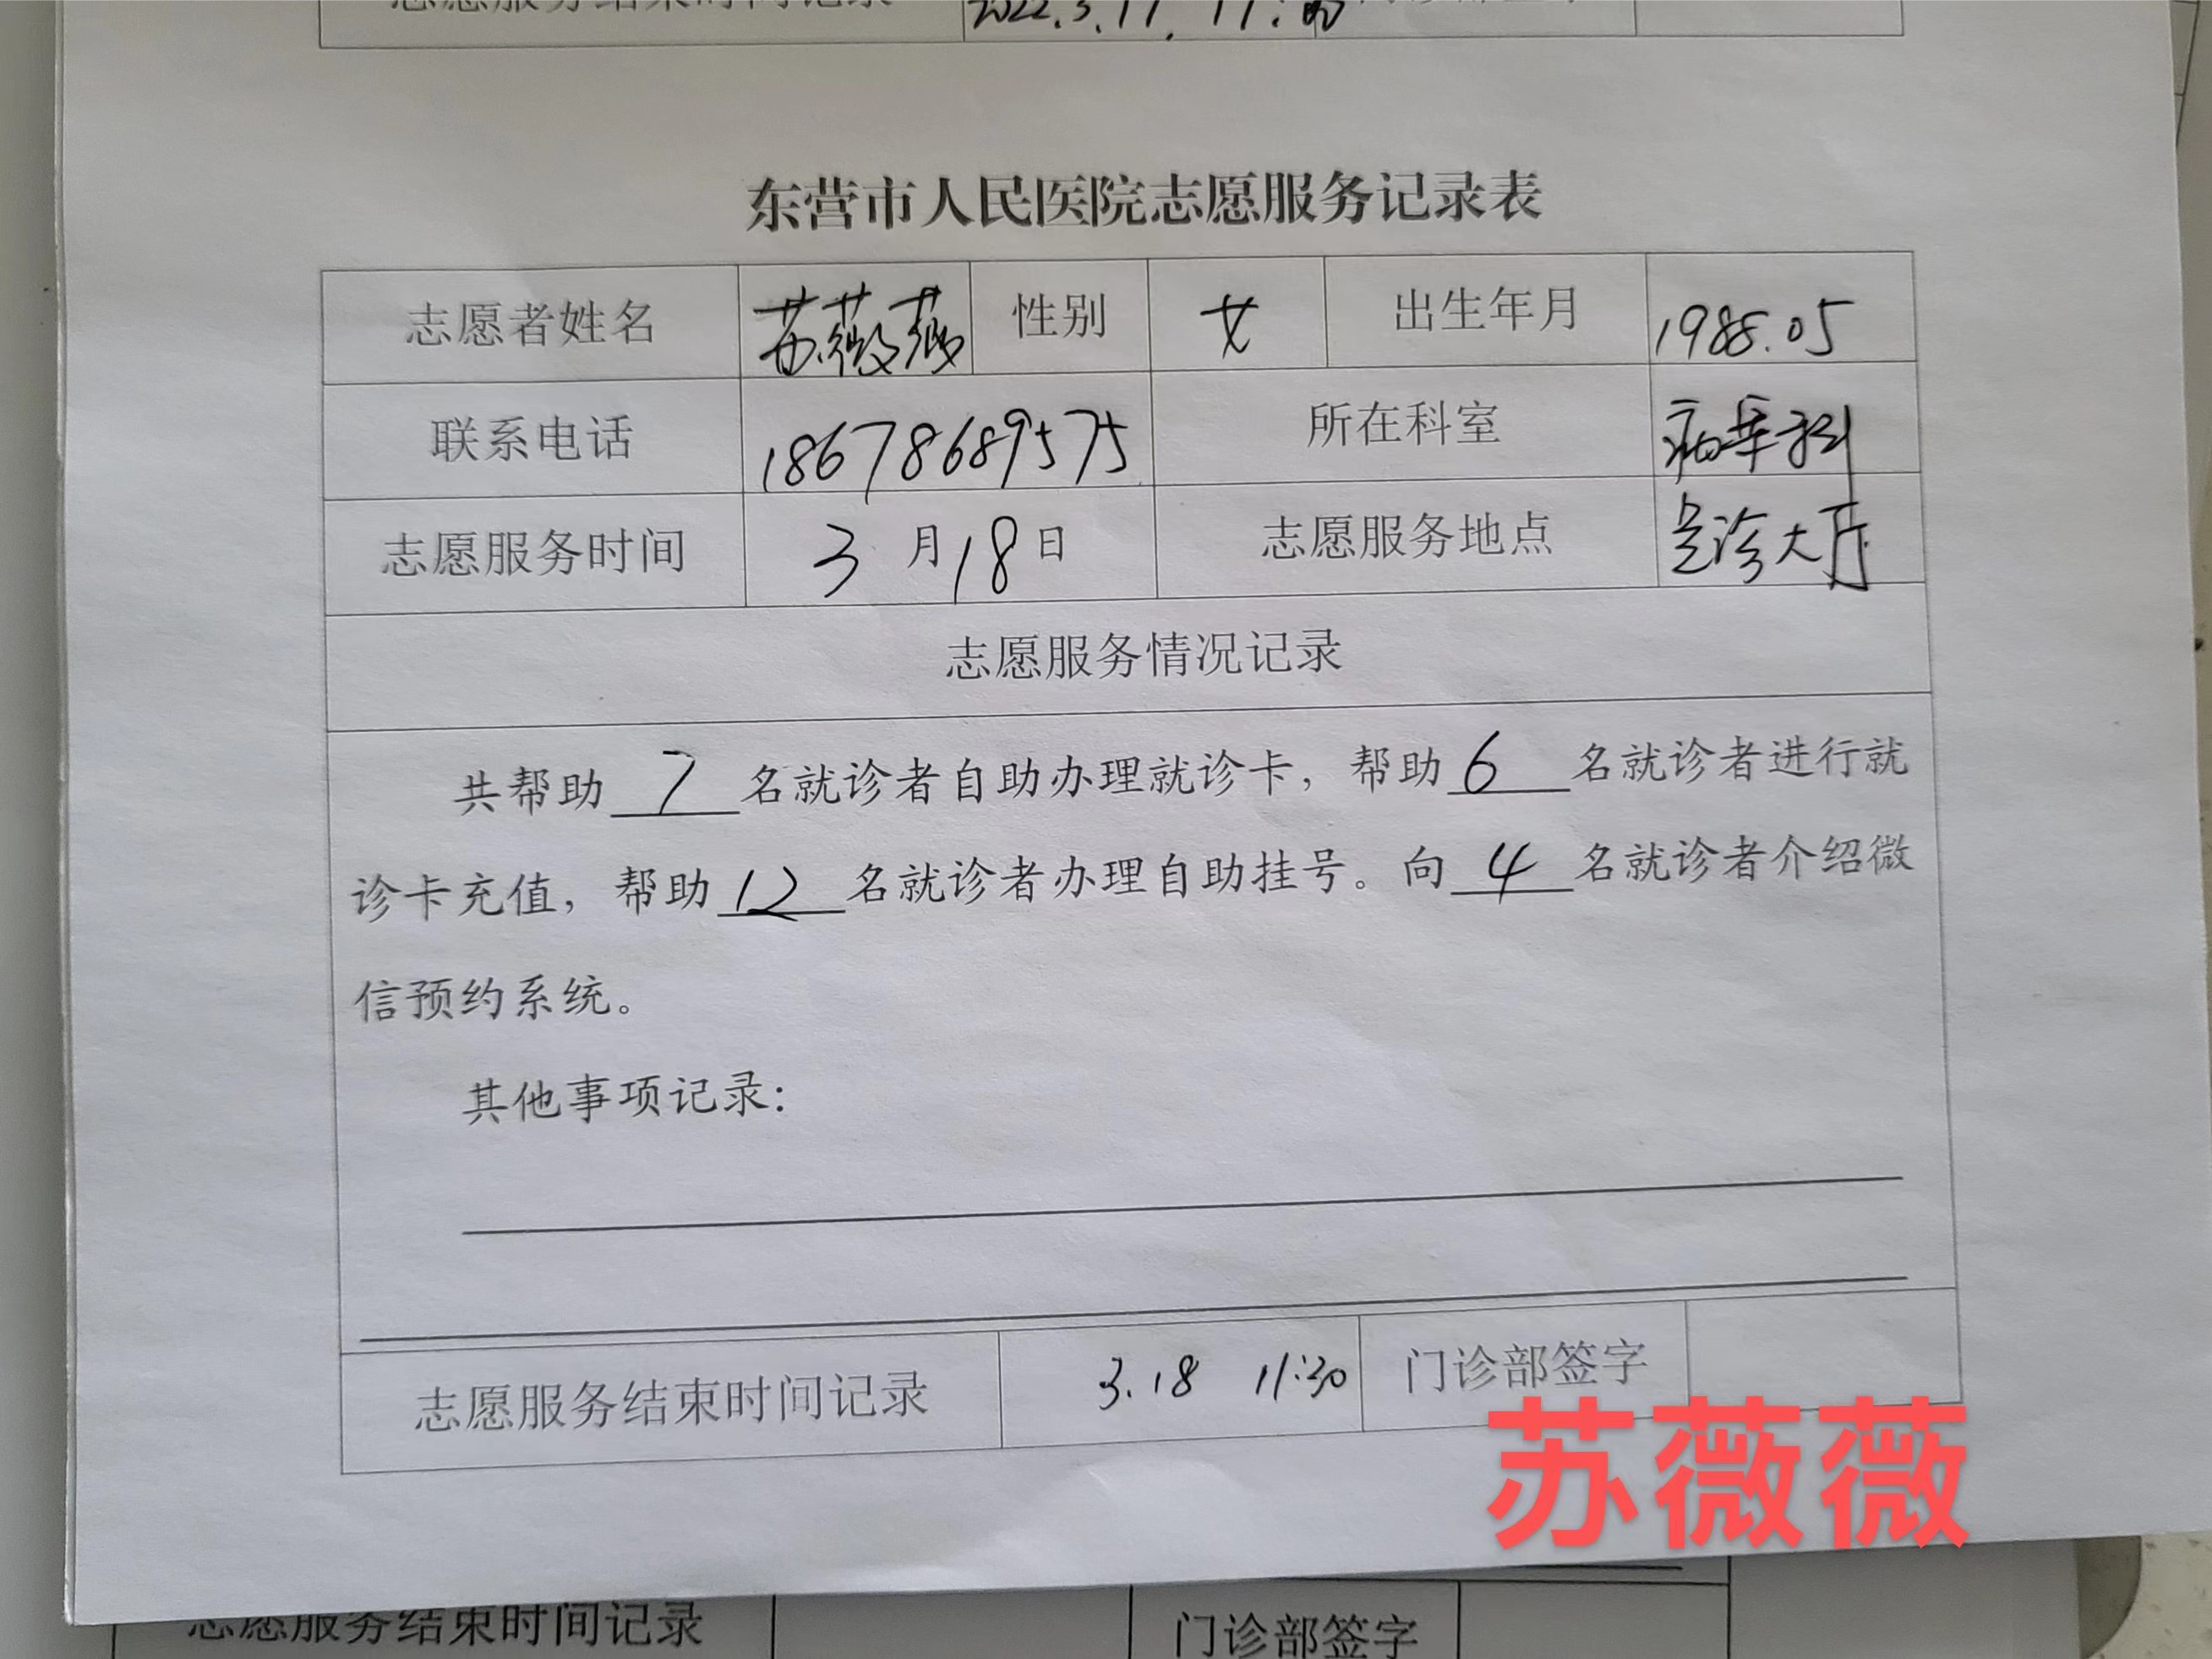 志愿服务结束时间记录 2022.3.17. 17:00
东营市人民医院志愿服务记录表
志愿者姓名 苏薇薇 性别 女 出生年月 1988.05
联系电话 18678689575 所在科室 病案科
志愿服务时间 3月18日 志愿服务地点 门诊大厅
志愿服务情况记录
共帮助 7 名就诊者自助办理就诊卡，帮助 6 名就诊者进行就
诊卡充值，帮助 12 名就诊者办理自助挂号。向 4 名就诊者介绍微
信预约系统。
其他事项记录：
志愿服务结束时间记录 3.18 11:30 门诊部签字
苏薇薇
志愿服务结束时间记录 门诊部签字